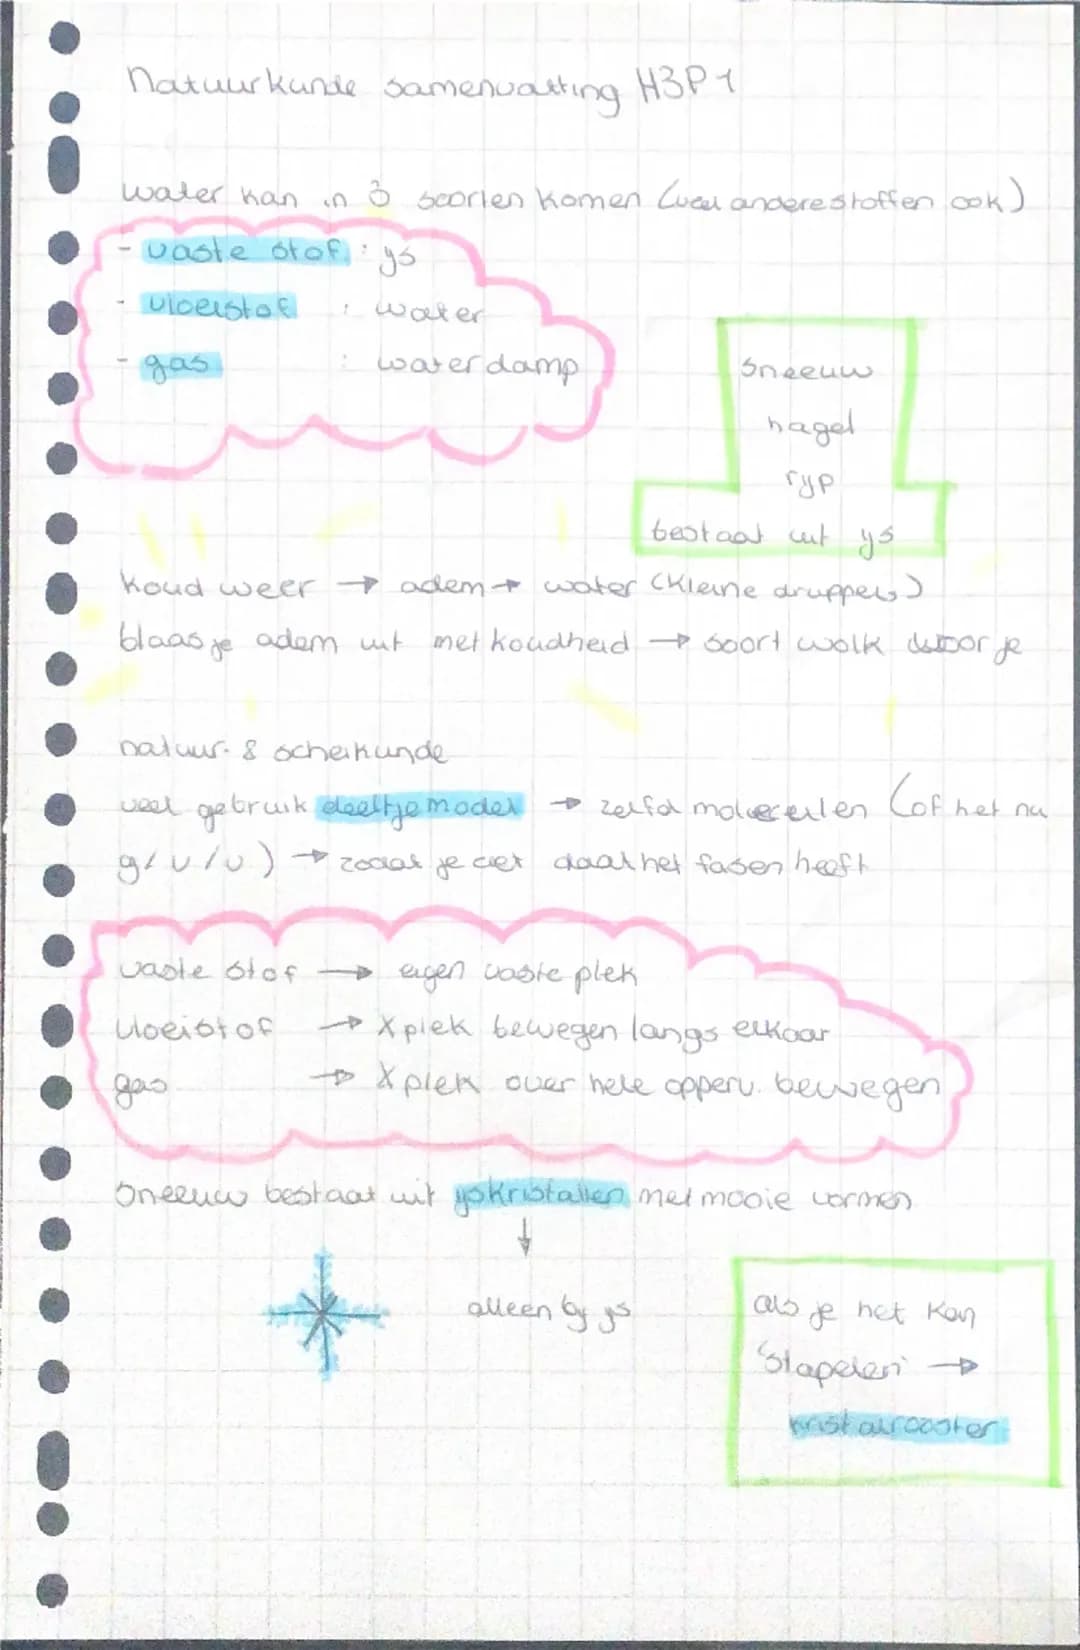 Natuurkunde samenvatting H3P1
water kan in 3 soorten komen (veel andere stoffen ook)
- vaste stof : ys
- vloeistof : water
- gas : waterdamp
sneeuw
hagel
ryp
bestaat uit ys
Koud weer → adem → water (kleine druppels)
blaas je adem uit met koudheid → soort wolk voor je
natuur- & scheikunde
veel gebruik deeltjemodel → zelfde moleculen (of het nu
g/v/v) → zodat je ziet dat het fasen heeft
vaste stof → eigen vaste plek
vloeistof → X plek bewegen langs elkaar
gas → X plek over hele opperv. bewegen
Sneeuw bestaat uit yskristallen met mooie vormen
↓
alleen by ys
als je het kan
'stapelen' →
kristalrooster